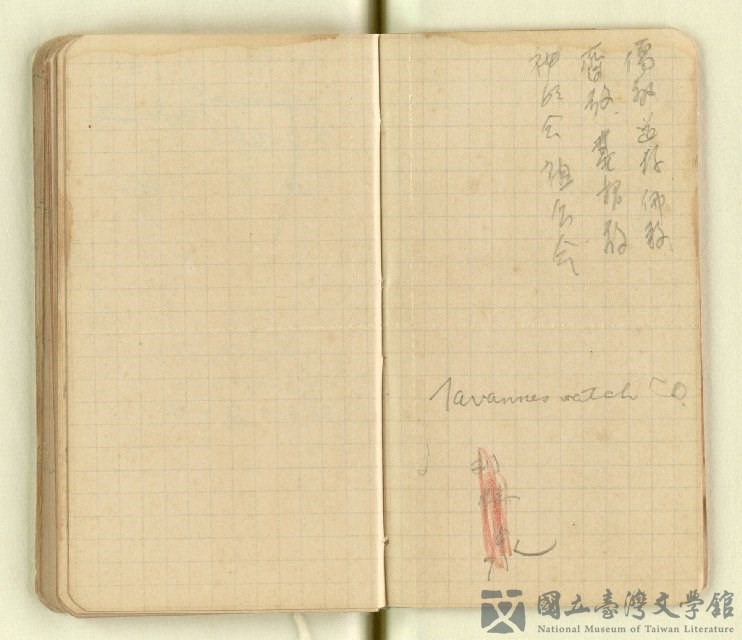 儒教 道教 佛教
齋教 基督教
神明会 祖公会
Tavannes watch Co.
國立臺灣文學館
National Museum of Taiwan Literature